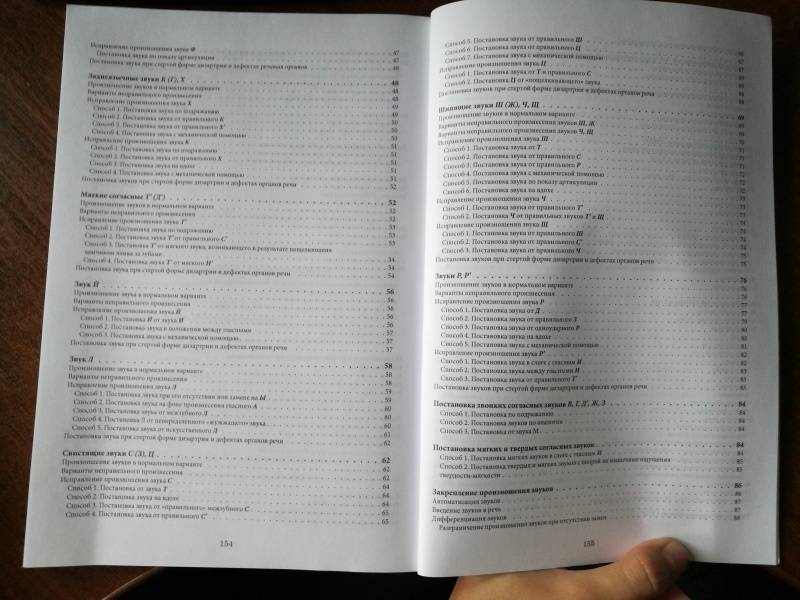 Исправление произношения звука Ф
Постановка звука по показу артикуляции 47
Постановка звука при стертой форме дизартрии и дефектах речевых органов 48
Заднеязычные звуки К (Г), Х 48
Произношение звуков в нормальном варианте 48
Варианты неправильного произношения 48
Исправление произношения звука Х 49
Способ 1. Постановка звука по подражанию 49
Способ 2. Постановка звука от правильного К 50
Способ 3. Постановка звука от правильного Х' 50
Способ 4. Постановка звука с механической помощью 50
Исправление произношения звука К 51
Способ 1. Постановка звука по подражанию 51
Способ 2. Постановка звука от правильного Х 51
Способ 3. Постановка звука на вдохе 51
Способ 4. Постановка звука с механической помощью 51
Постановка звуков при стертой форме дизартрии и дефектах органов речи 52
Мягкие согласные Т' (Д') 52
Произношение звуков в нормальном варианте 52
Варианты неправильного произнесения 52
Исправление произношения звука Т' 53
Способ 1. Постановка звука по подражанию 53
Способ 2. Постановка звука Т' от правильного С' 53
Способ 3. Постановка Т' от мягкого звука, возникающего в результате пощелкивания
кончиком языка за зубами 54
Способ 4. Постановка звука Т' от мягкого Н' 54
Постановка звука при стертой форме дизартрии и дефектах органов речи 54
Звук Й 56
Произношение звука в нормальном варианте 56
Варианты неправильного произнесения 56
Исправление произношения звука Й 56
Способ 1. Постановка Й от звука И 56
Способ 2. Постановка звука в положении между гласными 57
Способ 3. Постановка звука с механической помощью 57
Постановка звука при стертой форме дизартрии и дефектах органов речи 57
Звук Л 58
Произношение звука в нормальном варианте 58
Варианты неправильного произнесения 58
Исправление произношения звука Л 59
Способ 1. Постановка звука при его отсутствии или замене на Ы 59
Способ 2. Постановка звука на фоне произнесения гласного А 60
Способ 3. Постановка звука от межзубного Л 60
Способ 4. Постановка Л от неопределенного «жужжащего» звука 60
Способ 5. Постановка звука от искусственного Л 61
Постановка звука при стертой форме дизартрии и дефектах органов речи 62
Свистящие звуки С (З), Ц 62
Произношение звуков в нормальном варианте 62
Варианты неправильного произнесения 62
Исправление произношения звука С 64
Способ 1. Постановка от звука Т 64
Способ 2. Постановка звука на вдохе 64
Способ 3. Постановка звука от «правильного» межзубного С 65
Способ 4. Постановка звука от правильного С' 65
154
Способ 5. Постановка звука от правильного Ш
Способ 6. Постановка звука от правильного Ц
Способ 7. Постановка звука с механической помощью
Исправление произношения звука Ц
Способ 1. Постановка звука от Т и правильного С
Способ 2. Постановка Ц от «пощелкивающего» звука
Постановка звуков при стертой форме дизартрии и дефектах органов речи
Шипящие звуки Ш (Ж), Ч, Щ 69
Произношение звуков в нормальном варианте
Варианты неправильного произнесения звуков Ш, Ж
Варианты неправильного произнесения звуков Ч, Щ
Исправление произношения звука Ш
Способ 1. Постановка звука от Т
Способ 2. Постановка звука от правильного С
Способ 3. Постановка звука от правильного Р
Способ 4. Постановка звука с механической помощью
Способ 5. Постановка звука по показу артикуляции
Способ 6. Постановка звука на вдохе
Исправление произношения звука Ч
Способ 1. Постановка звука от правильного Т'
Способ 2. Постановка Ч от правильных звуков Т' и Щ
Исправление произношения звука Щ
Способ 1. Постановка звука от правильного Ш
Способ 2. Постановка звука от правильного С'
Способ 3. Постановка звука от правильного Ч
Постановка звуков при стертой форме дизартрии и дефектах органов речи 75
Звуки Р, Р' 76
Произношение звуков в нормальном варианте 76
Варианты неправильного произнесения
Исправление произношения звука Р 77
Способ 1. Постановка звука от Д
Способ 2. Постановка звука от правильного З
Способ 3. Постановка звука от одноударного Р
Способ 4. Постановка звука на вдохе
Способ 5. Постановка звука с механической помощью 81
Исправление произношения звука Р' 82
Способ 1. Постановка звука в слоге с гласным И 82
Способ 2. Постановка звука между гласными И 83
Способ 3. Постановка звука от правильного Т' 83
Постановка звуков при стертой форме дизартрии и дефектах органов речи 83
Постановка звонких согласных звуков В, Г, Д', Ж, З 84
Способ 1. Постановка по подражанию 84
Способ 2. Постановка звуков по аналогии 84
Способ 3. Постановка от звука М 84
Постановка мягких и твердых согласных звуков 84
Способ 1. Постановка мягких звуков в слоге с гласным И 84
Способ 2. Постановка твердых и мягких звуков с опорой на мышечные ощущения 85
твердости-мягкости 85
Закрепление произношения звуков 86
Автоматизация звуков 86
Введение звуков в речь 87
Дифференциация звуков 87
Разграничение произношения звуков при отсутствии замен 88
155